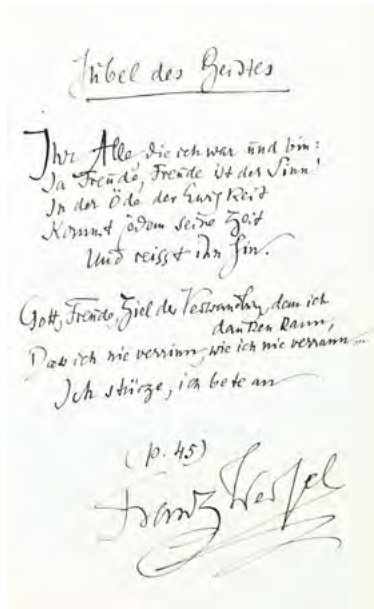 Jubel des Geistes
Ihr Alle die ich war und bin:
Ja Freude, Freude ist der Sinn!
In der Öde der Ewigkeit
Kommt jedem seine Zeit
Und reisst ihn hin.
Gott, Freude, Ziel der Verwandlung, dem ich
danken kann,
Dass ich nie verrinn, wie ich nie verrann...
Ich stürze, ich bete an
(p. 45)
Franz Werfel